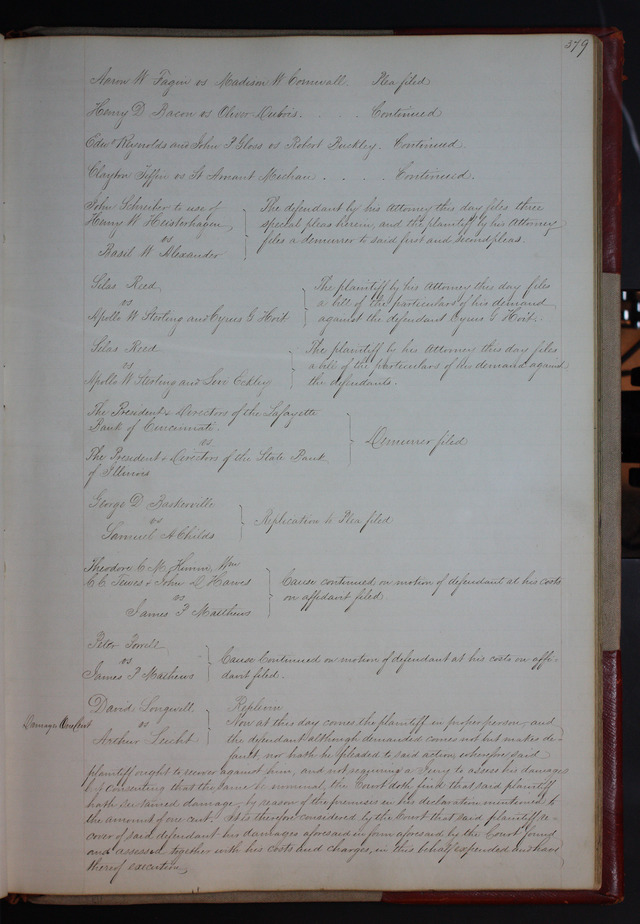 379
Aaron W Fagin vs Madison W Cornwall Plea filed
Henry D Bacon vs Oliver Dubois. . . . Continued
Edwd Reynolds and John P Gloss vs Robert Buckley. Continued.
Clayton Tiffin vs St Amant Michau . . . . Continued.
John Schreiber to use of
Henry W Heisterhagen
vs
Basil W Alexander
The defendant by his Attorney this day files three
special pleas herein, and the plaintiff by his Attorney
files a demurrer to said first and second pleas.
Silas Reed
vs
Apollo W Sterling and Cyrus G Hoit
The plaintiff by his Attorney this day files
a bill of the particulars of his demand
against the defendant Cyrus G Hoit.
Silas Reed
vs
Apollo W Sterling and Levi Eckley
The plaintiff by his Attorney this day files
a bill of the particulars of his demand against
the defendants.
The President & Directors of the Lafayette
Bank of Cincinnati.
vs
The President & Directors of the State Bank
of Illinois
Demurrer filed
George D Baskerville
vs
Samuel A Childs
Replication to Plea filed
Theodore C M Wm
C C Tewes & John D Hawes
vs
James P Matthews
Cause continued on motion of defendant at his costs
on affidavit filed
Peter Powell
vs
James P Mathews
Cause Continued on motion of defendant at his costs on affi-
davit filed.
Damages one cent
David Longwell
vs
Arthur Lucht
Replevin
Now at this day comes the plaintiff in proper person and
the defendant although demanded comes not but makes de-
fault, nor hath he pleaded to said action, wherefore said
plaintiff ought to recover against him, and not requiring a Jury to assess his damages
but consenting that the same be nominal, the Court doth find that said plaintiff
hath sustained damage, by reason of the premises in his declaration mentioned to
the amount of one cent. It is therefore considered by the Court that said plaintiff re-
cover of said defendant his damages aforesaid in form aforesaid by the Court found
and assessed together with his costs and charges, in this behalf expended and have
thereof execution